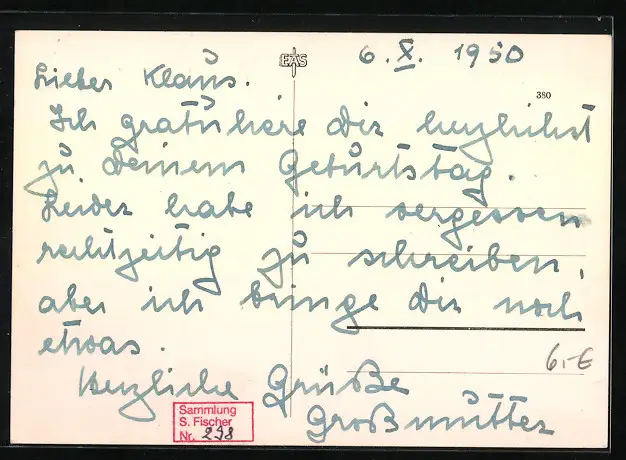 EAS
6. X. 1950
380
Lieber Klaus.
Ich gratuliere Dir herzlichst
zu Deinem Geburtstag.
Leider habe ich vergessen
rechtzeitig zu schreiben,
aber ich bringe Dir noch
etwas.
6,-€
Herzliche Grüße
Großmutter
Sammlung
S. Fischer
Nr. 298